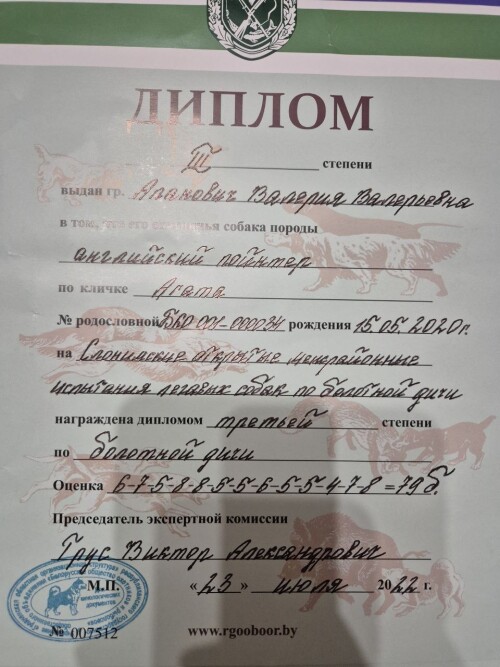 ДИПЛОМ
III степени
выдан гр. Апанович Валерия Валерьевна
в том, что его охотничья собака породы
английский пойнтер
по кличке Агата
№ родословной БКО 001-000034 рождения 15.05.2020г.
на Слонимские открытые межрайонные
испытания легавых собак по болотной дичи
награждена дипломом третьей степени
по болотной дичи
Оценка 6-7-5-8-8-5-5-6-5-5-4-7-8 =79б.
Председатель экспертной комиссии
Грус Виктор Александрович
М.П. «23» июля 2022 г.
№ 007512 www.rgooboor.by